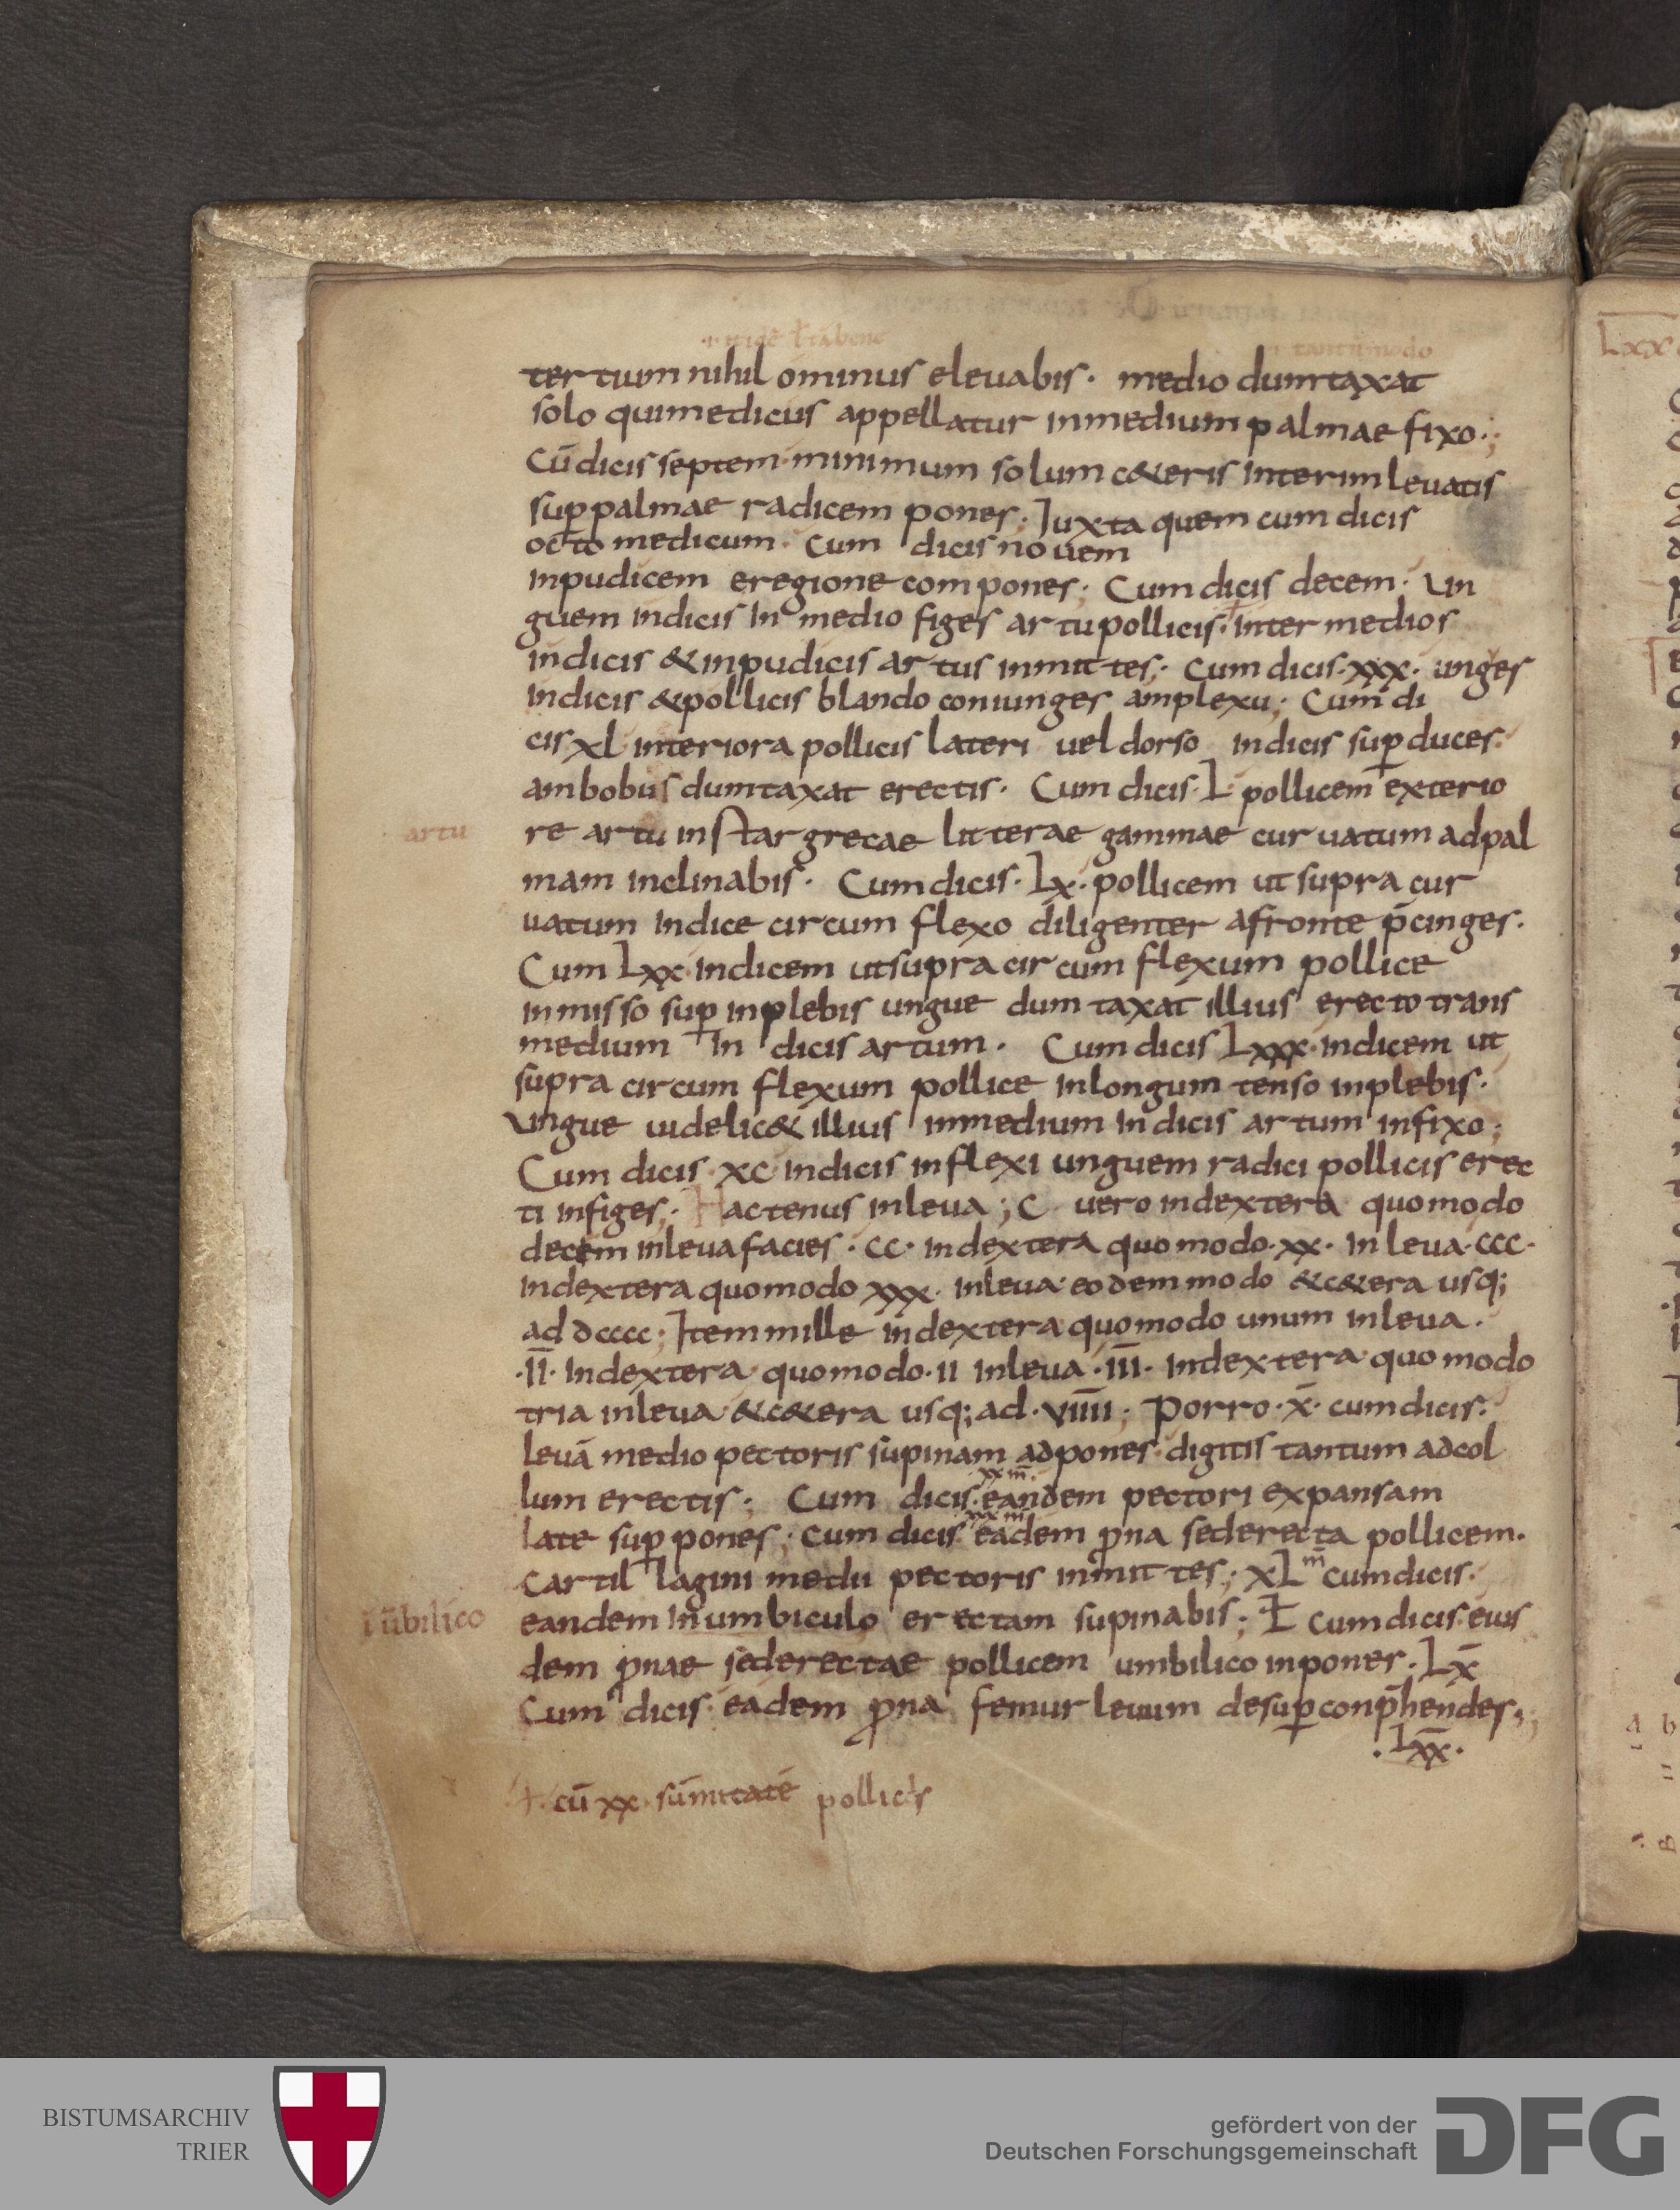 tertum nihil ominus eleuabis· medio dumtaxat
solo quimedicus appellatur inmedium palmae fixo·;
Cū dicis septem· minimum solum c&eris interim leuatis
sup̱ palmae radicem pones; Iuxta quem cum dicis
octo medicum· Cum dicis nouem
inpudicem eregione compones; Cum dicis decem· un
guem indicis in medio figes artu pollicis· inter medios
indicis & inpudicis artus inmittes; Cum dicis· xxx· unges
indicis & pollicis blando coniunges amplexu; Cum di
cis xl interiora pollicis lateri uel dorso indicis sup̱duces·
ambobus dumtaxat erectis· Cum dicis· L· pollicem exterio
artu
re artu instar grecae litterae gammae curuatum ad pal
mam inclinabis· Cum dicis· Lx· pollicem ut supra cur
uatum indice circum flexo diligenter afronte p̄cinges·
Cum Lxx· indicem utsupra circum flexum pollice
inmisso sup̱ inplebis ungue dum taxat illius erecto trans
medium in dicis artum· Cum dicis Lxxx· indicem ut
supra circum flexum pollice inlongum tenso inplebis·
ungue uidelic& illius inmedium indicis artum infixo;
Cum dicis· xc· indicis inflexi unguem radici pollicis erec
ti infiges; Hactenus inleua; C· uero indextera quomodo
decem inleua facies· cc· indextera quomodo· xx· in leua· ccc·
indextera quomodo xxx· inleua· eodem modo &c&era usq;
ad dcccc; Item mille indextera quomodo unum inleua·
·I̅I̅· indextera· quomodo· II inleua· I̅I̅I̅· indextera quomodo
tria inleua &c&era usq; ad· V̅I̅I̅I̅I̅; Porro· x̄· cum dicis·
leuā medio pectoris supinam adpones· digitis tantum adcol
xxm̄·
lum erectis; Cum dicis· eandem pectori expansam
xxxm̄
late sup̱ pones; cum dicis eadem ꝓna sederecta pollicem·
cartil lagini medii pectoris inmittes; xLm̄ cumdicis·
ī ūbilico
eandem in umbiculo erectam supinabis; L̵ cumdicis· eius
dem ꝓnae sederectae pollicem umbilico inpones· Lx̄
Cum dicis· eadem ꝓna femur leuum desup̱ conp̄hendes;
·Lx̄x̄·
cū xx· sūmitatē pollicis
Lxx
BISTUMSARCHIV
TRIER
gefördert von der
Deutschen Forschungsgemeinschaft
DFG